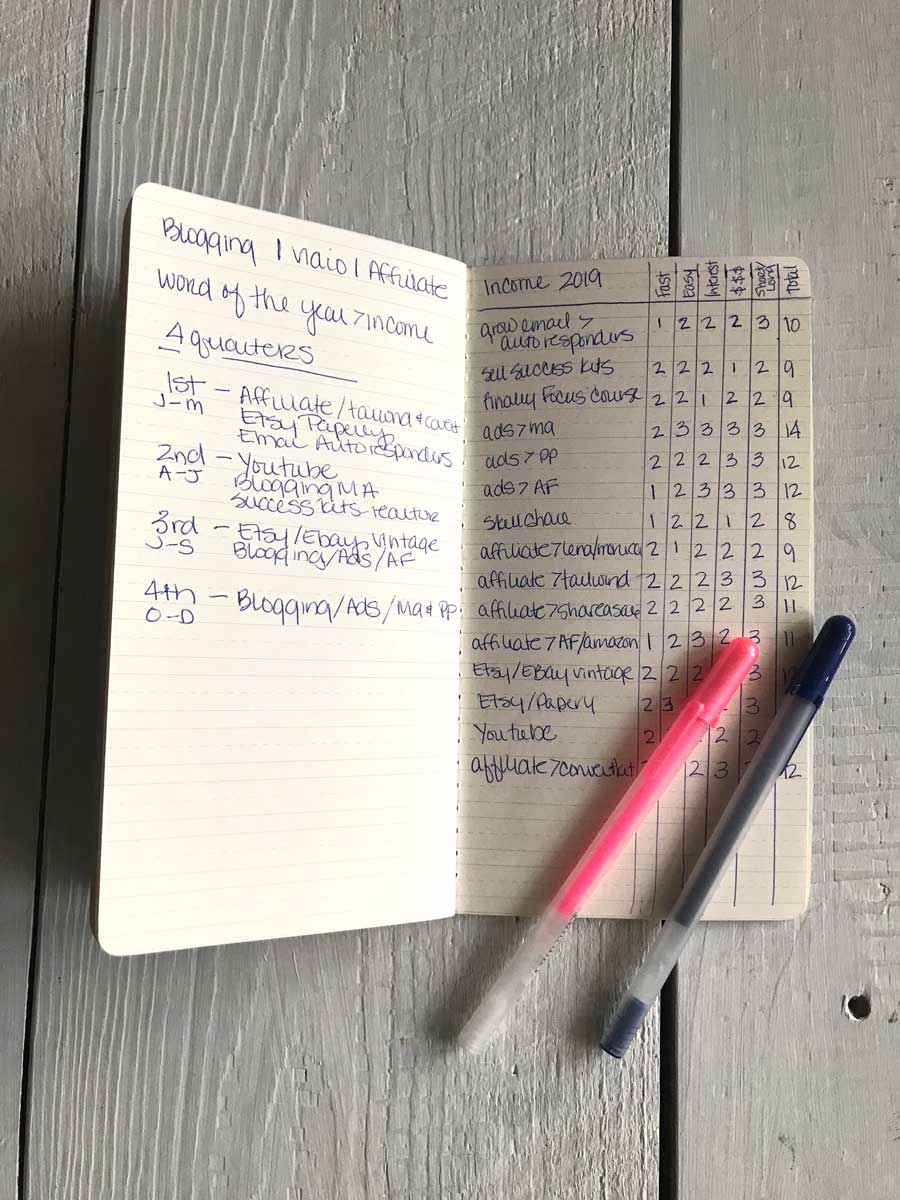 Blogging | naio | Affiliate
word of the year > income
4 quarters
1st – Affiliate/tailwind & convert
J-M Etsy Papery
Email Autoresponders
2nd – Youtube
A-J Blogging MA
success kits-realtor
3rd – Etsy/Ebay vintage
J-S Blogging/Ads/AF
4th – Blogging/Ads/Ma & PP
O-D
Income 2019 Fast Easy Interest $$$ Total
grow email > 1 2 2 2 3 10
autoresponders
sell success kits 2 2 2 1 2 9
finally Focus course 2 2 1 2 2 9
ads > ma 2 3 3 3 3 14
ads > PP 2 2 2 3 3 12
ads > AF 1 2 3 3 3 12
skillshare 1 2 2 1 2 8
affiliate > lena/monica 2 1 2 2 2 9
affiliate > tailwind 2 2 2 3 3 12
affiliate > shareasale 2 2 2 2 3 11
affiliate > AF/amazon 1 2 3 2 3 11
Etsy/EBay vintage 2 2 2 3
Etsy/Papery 2 3 3
Youtube 2 2 2
affiliate > convertkit 2 3 12